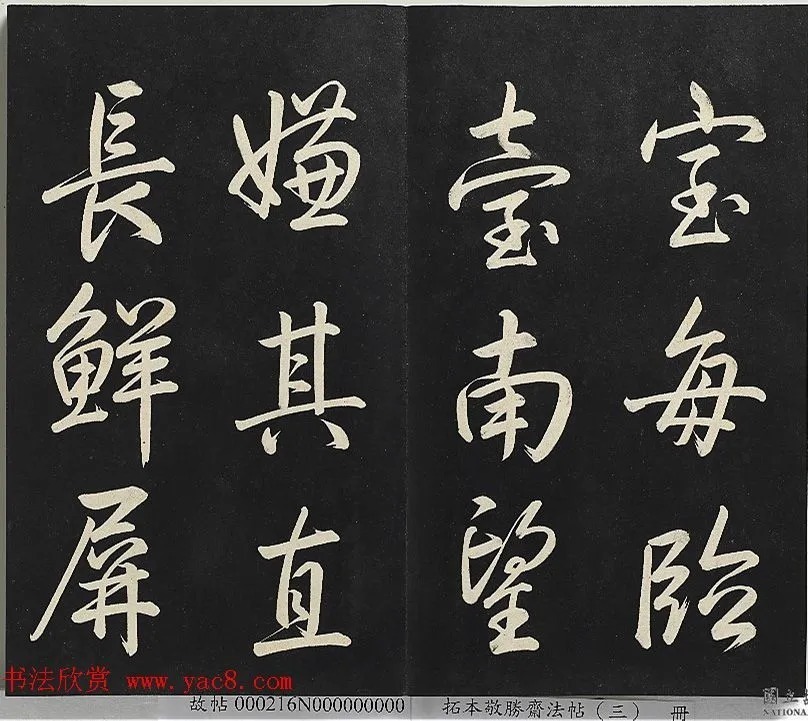 室每臨
臺南望
嫌其直
長鮮屏
书法欣赏 www.yac8.com
故帖 000216N000000000
拓本敬勝齋法帖（三） 冊
國立
NATIONA